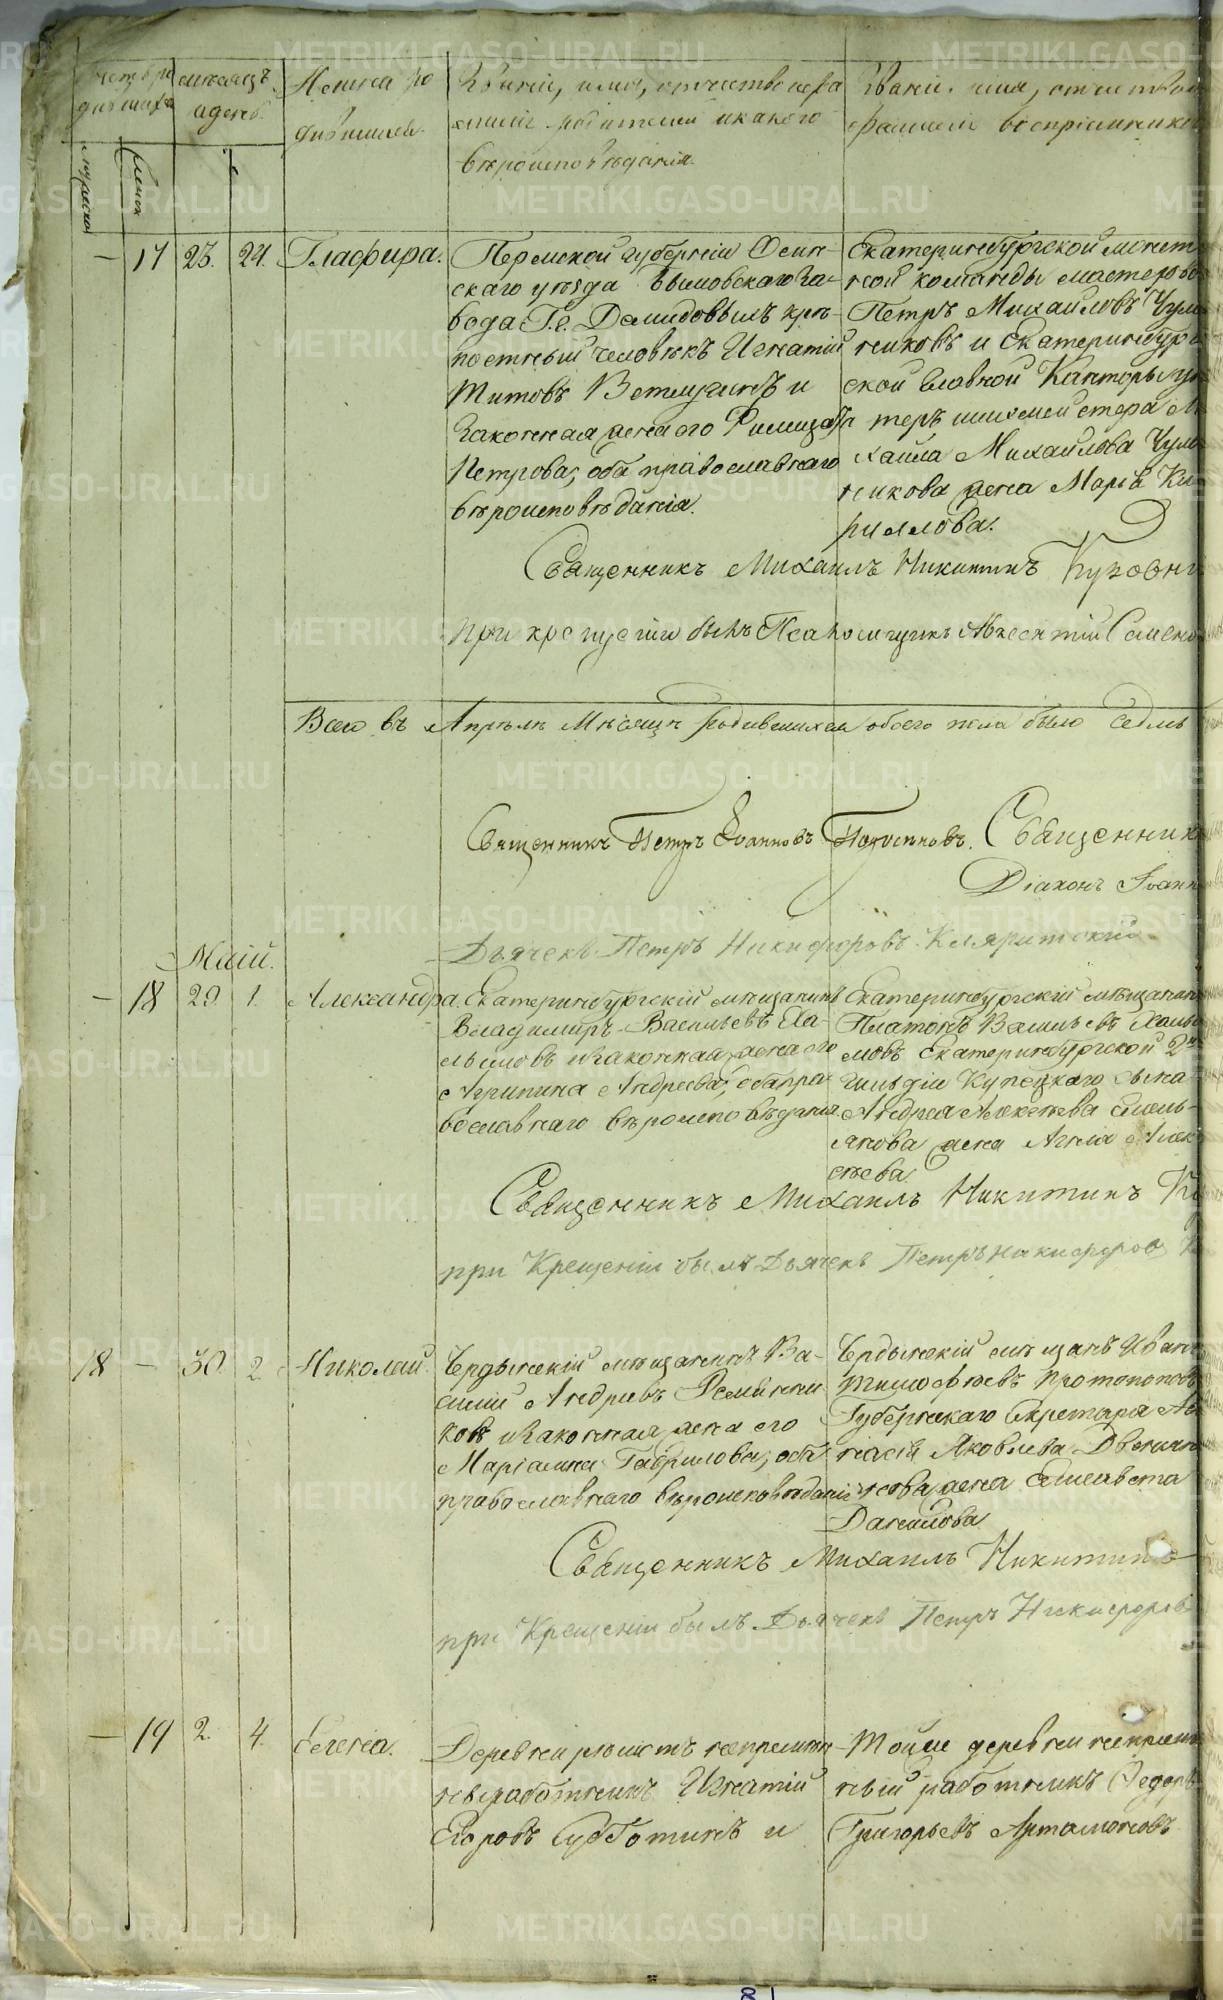 Имена ро
дившихся.
Званіе, имя, отчество и фа
милія родителей и какого
вѣроисповѣданія.
Званіе, имя, отчество и
фамилія воспріемников
мѣсяцъ
и день
женск
— 17 23. 24. Глафира.
Пермской губерніи Осин-
скаго уѣзда Бымовскаго за-
вода Г.г. Демидовыхъ крѣ-
постный человѣкъ Игнатій
Титовъ Ветлугинъ и
законная жена его
Петрова, оба православнаго
вѣроисповѣданія.
Екатеринбургской монет
ной команды мастеровой
Петръ Михайловъ Чуп
никовъ и Екатеринбург
ской Главной Канторы
теръ шихтмейстера Ми
хайла Михайлова
никова жена Марія Ки
риллова.
Священникъ Михаилъ Никитинъ
при крещеніи былъ Авксентій Семено
Всего въ Апрѣлѣ Мѣсяцѣ родившихся обоего пола было седмь
Священникъ Петръ Іоанновъ Священник
Діаконъ Іоанн
Дьячекъ Петръ Никифоровъ
Маій.
— 18 29. 1. Александра.
Екатеринбургскій мѣщанинъ
Владимиръ Васильевъ Ха-
лымовъ и законная жена его
Агрипина Андреева, оба пра-
вославнаго вѣроисповѣданія
Екатеринбургскій мѣщанин
Платонъ Васильевъ Халы
мовъ Екатеринбургской 2й
гильдіи Купецкаго сына
Андрея Алексѣева Емель-
янова жена Агнія Алек
сѣева.
Священникъ Михаилъ Никитинъ
при Крещеніи былъ Дьячекъ Петръ Никифоровъ
18 — 30. 2. Николай.
Чердынскій мѣщанинъ Ва-
силій Андреевъ Ремянни
ковъ и законная жена его
Маріамна Гаврилова, оба
православнаго вѣроисповѣданія
Чердынскій мѣщанъ Иванъ
Тимофѣевъ Протопоповъ
Губернскаго Секретаря
насія Яковлева
нова жена Елисавета
Данилова
Священникъ Михаилъ Никитинъ
при Крещеніи былъ Дьячекъ Петръ Никифоровъ
— 19 2. 4. Елена.
Деревни рѣшотъ непремѣн
ный работникъ Игнатій
Егоровъ Субботинъ и
Той же деревни непремѣн
ный работникъ Федоръ
Григорьевъ Артамоновъ